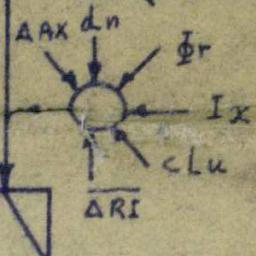 ΔAX dn
Φr
Ix
cLu
ΔRI